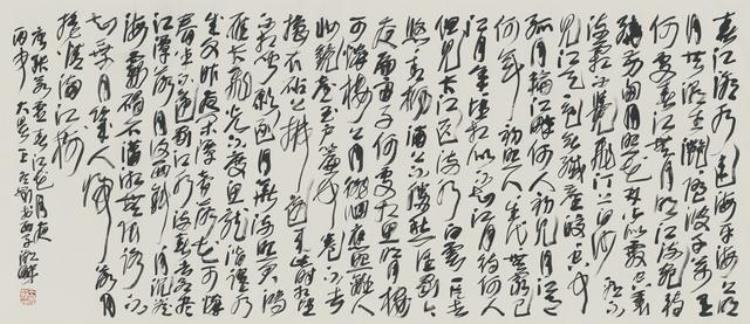 春江潮水连海平海上明
月共潮生滟滟随波千万里
何处春江无月明江流宛转
绕芳甸月照花林皆似霰空里
流霜不觉飞汀上白沙看不
见江天一色无纤尘皎皎空中
孤月轮江畔何人初见月江月
何年初照人人生代代无穷已
江月年年望相似不知江月待何人
但见长江送流水白云一片去
悠悠青枫浦上不胜愁谁家今
夜扁舟子何处相思明月楼
可怜楼上月徘徊应照离人
妆镜台玉户帘中卷不去
捣衣砧上拂还来此时相望
不相闻愿逐月华流照君鸿
雁长飞光不度鱼龙潜跃水
成文昨夜闲潭梦落花可怜
春半不还家江水流春去欲尽
江潭落月复西斜斜月沉沉
海雾碣石潇湘无限路不
知乘月几人归落月
摇情满江树
唐张若虚春江花月夜
丙申